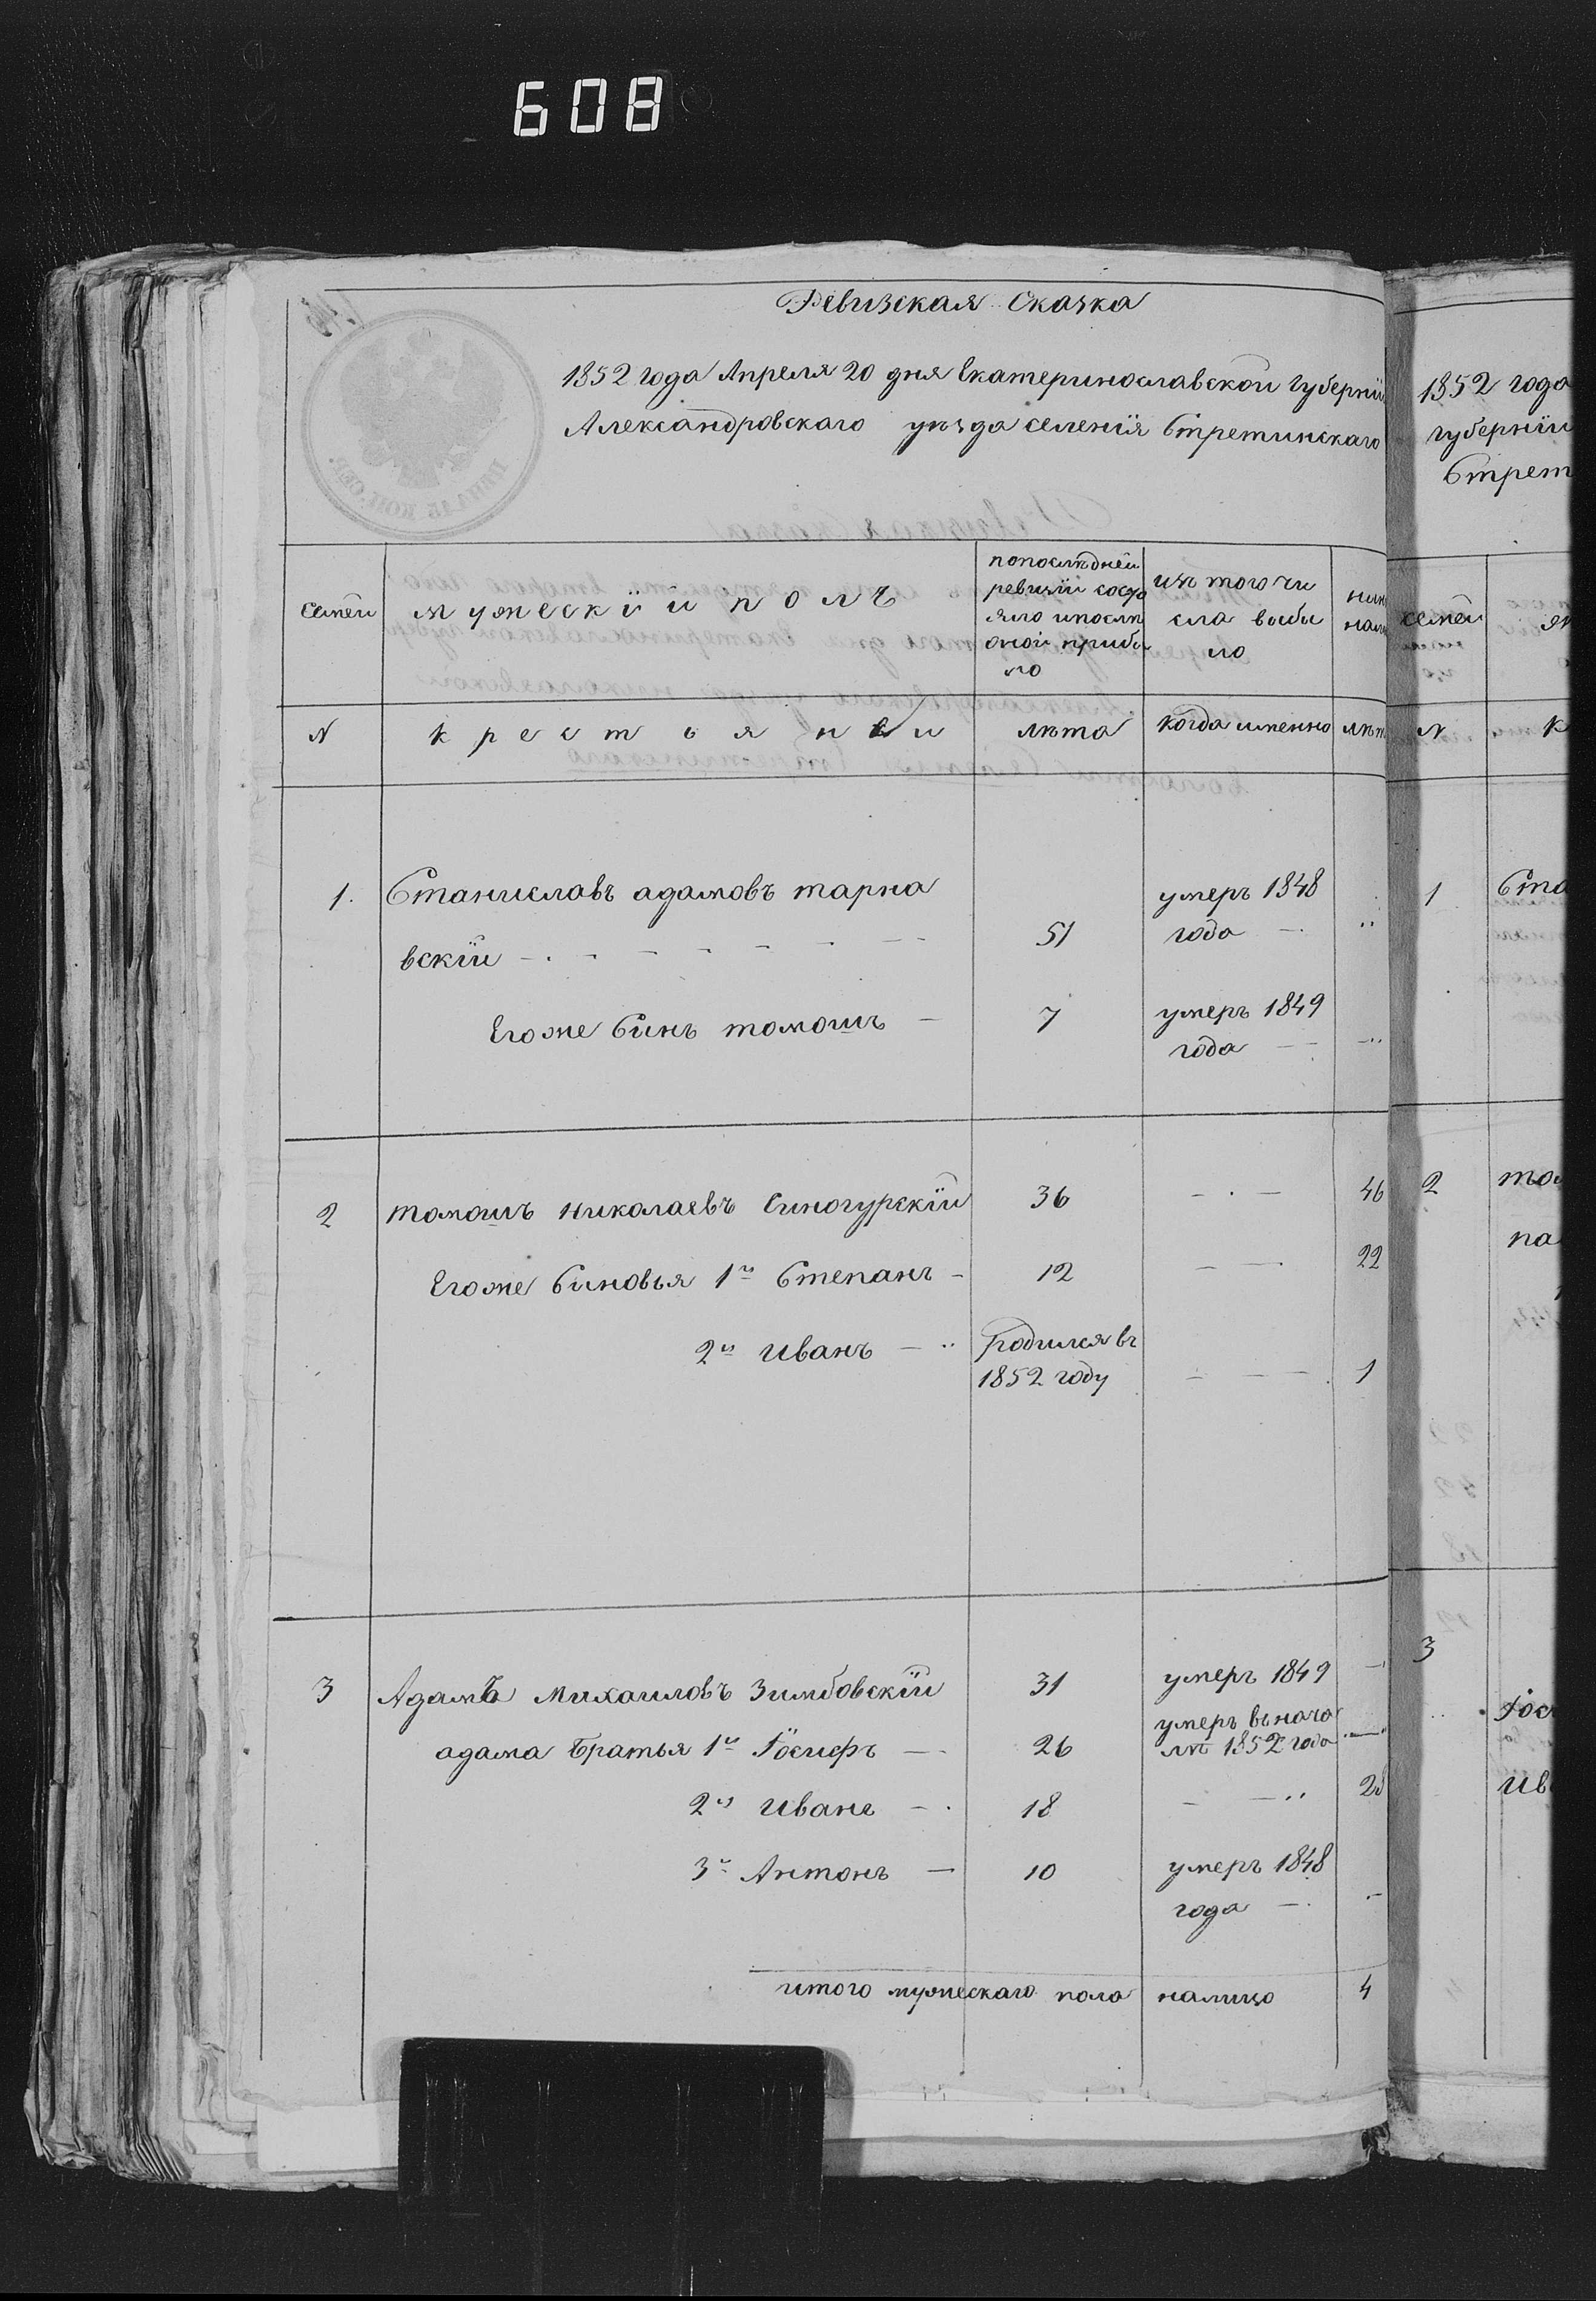 608
Ревизская Сказка
1852 года Апреля 20 дня Екатеринославской губернїи
Александровскаго уѣзда селенїя Стретинскаго
семей
мужескїй полъ
попослѣдней
ревизїи состо
яло ипослѣ
оной прибы
ло
изъ того чи
сла выбы
ло
N
крестьяни
лѣта
когда именно
лѣт
1.
Станиславъ адамовъ тарна
вскїй
51
умеръ 1848
года
Егоже Синъ томошъ
7
умеръ 1849
года
2
томошъ николаевъ Синогурскїй
36
46
Егоже Синовья 1й Степанъ
12
22
2й Иванъ
Родился въ
1852 году
1
3
Адамъ Михаиловъ Зимбовскїй
31
умеръ 1849
адама Братья 1й Їосифъ
26
умеръ вьнача
лѣ 1852 года
2й Иванъ
18
28
3й Антонъ
10
умеръ 1848
года
итого мужескаго пола налицо
4
1852 года
губернїи
Стрет
семей
N
к
1
Ста
2
том
па
3
Їос
Ив